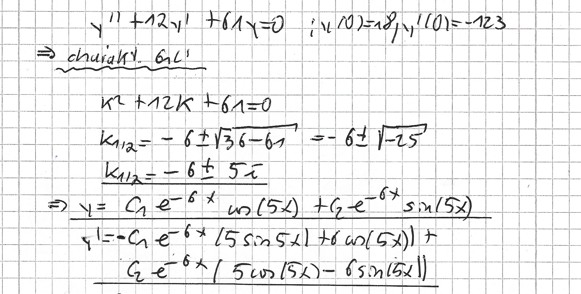 y'' + 12y' + 61y = 0 ; y(0) = 18, y'(0) = -123
⇒ charakt. Gl:
k² + 12k + 61 = 0
k1/2 = - 6 ± √36 - 61 = - 6 ± √-25
k1/2 = - 6 ± 5i
⇒ y = C1 e^-6x cos(5x) + C2 e^-6x sin(5x)
y' = -C1 e^-6x (5 sin 5x) + 6 cos(5x)) +
C2 e^-6x (5 cos(5x) - 6 sin(5x))